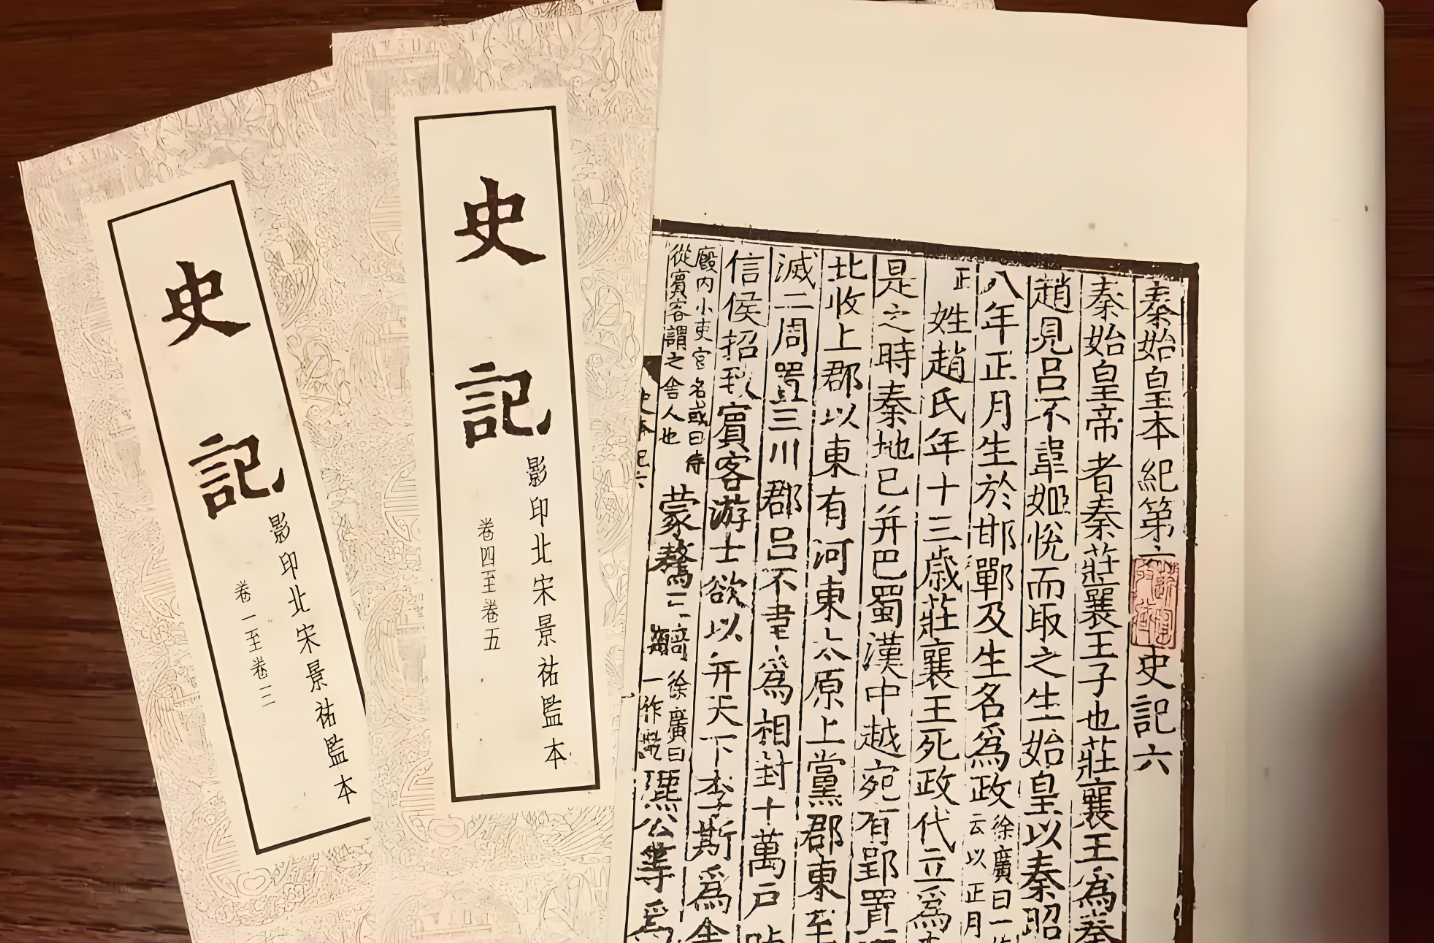 史記
影印北宋景祐監本
卷一至卷三
史記
影印北宋景祐監本
卷四至卷五
秦始皇本紀第六 史記六
秦始皇帝者秦莊襄王子也莊襄王為秦
趙見呂不韋姬悅而取之生始皇以秦昭
八年正月生於邯鄲及生名為政徐廣曰一作
正云以正月
姓趙氏年十三歳莊襄王死政代立為
是之時秦地已并巴蜀漢中越宛有郢置
北收上郡以東有河東太原上黨郡東至
滅二周置三川郡呂不韋為相封十萬戶
信侯招致賓客游士欲以并天下李斯為舍
廄内小吏官名或曰侍
從賓客謂之舍人也
蒙驁王齮徐廣曰
一作齕
麃公等為